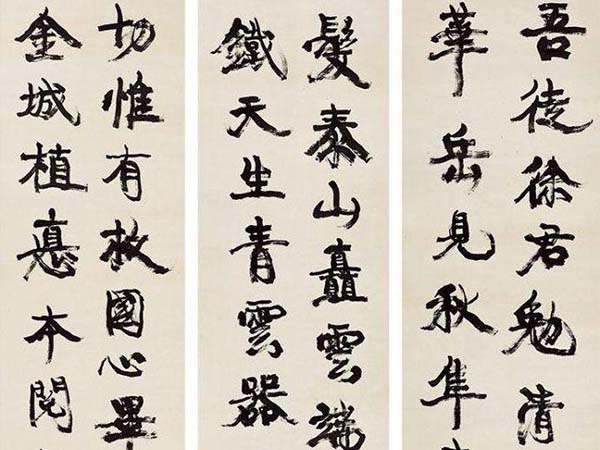 吾徒徐君勉清
華岳見秋隼
髮泰山矗雲端
鐵天生青雲器
切惟有救國心
金城植悳本閱